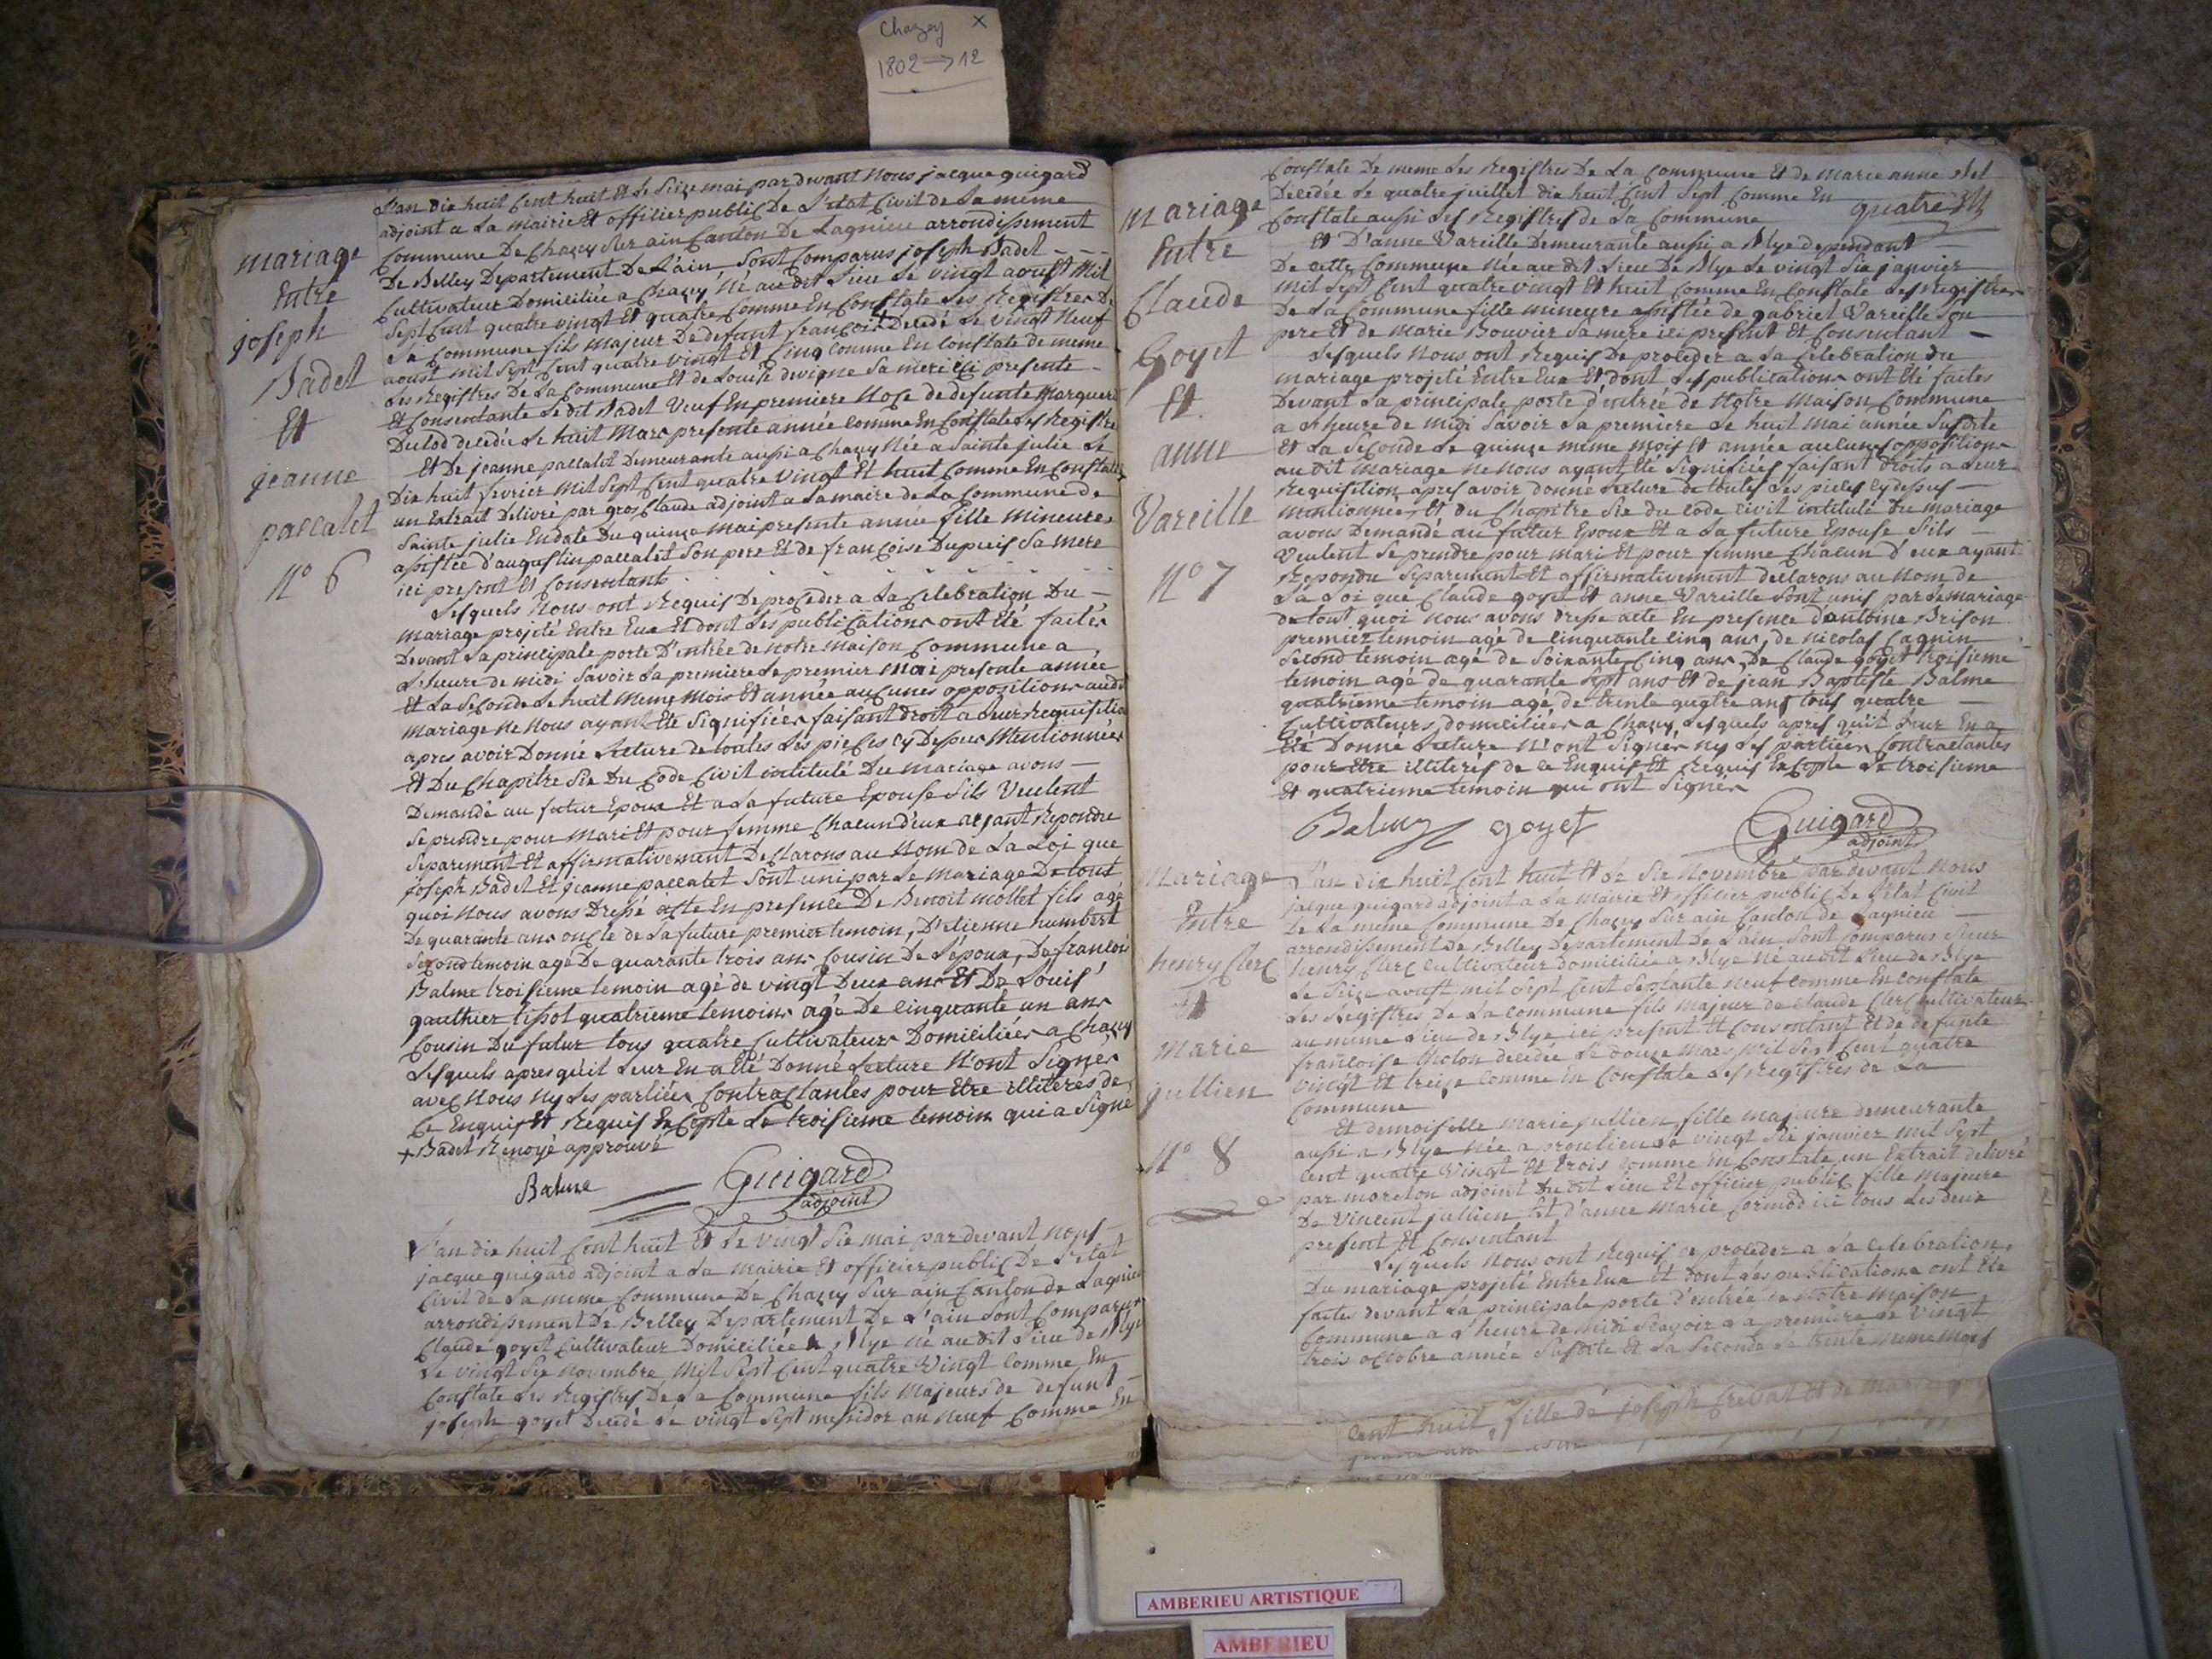 Chazey X
1802 → 12
L'an dix huit Cent huit Et le Seize mai par devant Nous jacque guigard
adjoint a la Mairie Et officier public De L'etat Civil de la meme
Commune De Chazey Sur ain Canton De Lagnieu arrondissement
De Belley Departement De L'ain Sont Comparus joseph Badet
Cultivateur Domiciliée a Chazey Né au dit Lieu Le vingt aoust Mil
Sept Cent quatre vingt Et quatre Comme En Constate Les Registres De
La Commune fils majeur De defunt françois + Decedé Le vingt Neuf
aoust Mil Sept Cent quatre vingt Et Cinq Comme En Constate de meme
Les Registres De La Commune Et de Louise devigne Sa mere ici presente
Et Consentante Le dit Badet Veuf En premiere Noce de defunte Margueri
Dulod decedée Le huit Mars presente année Comme En Constate Les Registre
Et De jeanne paccalet Demeurante aussi a Chazey Née a Sainte julie Le
Dix huit fevrier Mil Sept Cent quatre Vingt Et huit Comme En Constate
un Extrait Delivré par gros Claude adjoint a La maire de La Commune de
Sainte julie En date Du quinze Mai presente année fille Mineure
assistée d'augustin paccalet Son pere Et de françoise Dupuis Sa mere
ici present Et Consentant
Lesquels Nous ont Requis De proceder a La Celebration Du
Mariage projeté Entre Eux Et dont Les publications ont Eté faites
Devant La principale porte D'entrée de Notre Maison Commune a
L'heure de midi Savoir La premiere Le premier Mai presente année
Et La Seconde Le huit Meme Mois Et année aucunes oppositions audit
Mariage Ne Nous ayant Eté Signifiées faisant droit a Leur Requisition
apres avoir Donné Lecture de toutes Les pieces cy Dessus Mentionnées
Et Du Chapitre Six Du Code Civil intitulé Du Mariage avons
Demandé au futur Epoux Et a La future Epouse Sils Veulent
Se prendre pour Mari Et pour femme Chacun d'eux ayant Repondu
Separement Et affirmativement Declarons au Nom de La Loi que
joseph Badet Et jeanne paccalet Sont uni par Le Mariage De tout
quoi Nous avons Dressé acte En presence De Benoit Mollet fils agé
De quarante ans oncle de La future premier temoin, D'etienne humbert
Second temoin agé De quarante trois ans Cousin De L'epoux, De françois
Balme troisieme temoin agé de vingt Deux ans Et De Louis
gauthier tissot quatrieme temoins agé De Cinquante un ans
Cousin Du futur tous quatre Cultivateurs Domiciliées a Chazey
Lesquels apres qu'il Leur En a Eté Donné Lecture N'ont Signés
avec Nous Ny Les partiées Contractantes pour Etre illiterés de
Ce Enquis Et Requis Excepte Le troisieme temoin qui a Signé
+ Badet Renoyé approuvé
Balme Guigard
adjoint
mariage
Entre
joseph
Badet
Et
jeanne
paccalet
N° 6
L'an dix huit Cent huit Et Le vingt Six mai par devant nous
jacque guigard adjoint a La Mairie Et officier public De L'etat
Civil de La meme Commune De Chazey Sur ain Canton de Lagnieu
arrondissement De Belley Departement De L'ain Sont Comparus
Claude goyet Cultivateur Domiciliée a Blye Né au dit Lieu de Blye
Le vingt Six Novembre Mil Sept Cent quatre Vingt Comme En
Constate Les Registres De La Commune fils Majeurs de defunt
joseph goyet Decedé Le vingt Sept messidor an Neuf Comme En
Constate De meme Les Registres De La Commune Et de Marie anne
Decedée Le quatre juillet dix huit Cent Sept Comme En
Constate aussi Les Registres de La Commune
quatre
Et D'anne Vareille Demeurante aussi a Blye dependant
De cette Commune Née au dit Lieu De Blye Le vingt Six janvier
Mil Sept Cent quatre vingt Et huit Comme En Constate Les Registres
De La Commune fille mineure assistée de gabriel Vareille Son
pere Et de Marie Bouvier Sa mere ici present Et Consentant
Lesquels Nous ont Requis De proceder a La Celebration du
Mariage projeté Entre Eux Et dont Les publications ont Eté faites
Devant La principale porte d'entrée de Notre Maison Commune
a L'heure de Midi Savoir La premiere Le huit Mai année Susdite
Et La Seconde Le quinze meme Mois Et année aucunes oppositions
au dit Mariage Ne Nous ayant Eté Signifiées faisant droits a Leur
Requisition apres avoir donné Lecture de toutes Les pieces cy dessus
Mentionnées Et du Chapitre Six du Code Civil intitulé Du Mariage
avons Demandé au futur Epoux Et a La future Epouse Sils
Veulent Se prendre pour Mari Et pour femme Chacun d'eux ayant
Repondu Separement Et affirmativement declarons au Nom de
La Loi que Claude goyet Et anne Vareille Sont unis par Le mariage
de tout quoi Nous avons dressé acte En presence d'antoine Brison
premier temoin agé de Cinquante Cinq ans, de Nicolas Cagnin
Second temoin agé de Soixante Cinq ans, De Claude goyet troisieme
temoin agé de quarante Sept ans Et de jean Baptiste Balme
quatrieme temoin agé de trente quatre ans tous quatre
Cultivateurs domiciliées a Chazey Lesquels apres qu'il Leur En a
Eté Donné Lecture N'ont Signés ny Les partiées Contractantes
pour Etre illiterés de ce Enquis Et Requis Excepte Le troisieme
Et quatrieme temoin qui ont Signés
Balme goyet Guigard
adjoint
mariage
Entre
Claude
Goyet
Et
anne
Vareille
N° 7
L'an dix huit Cent huit Et Le Six Novembre par devant Nous
jacque guigard adjoint a La Mairie Et officier public De L'etat Civil
De La même Commune De Chazey Sur ain Canton de Lagnieu
arrondissement De Belley Departement De L'ain Sont Comparus Sieur
henry Clerc Cultivateur domiciliée a Blye Né au dit Lieu de Blye
Le Seize aoust mil Sept Cent Septante neuf Comme En Constate
Les Registres de La Commune fils Majeur de Claude Clerc Cultivateur
au meme Lieu de Blye ici present Et Consentant Et de defunte
françoise decedée Le douze Mars Mil Sept Cent quatre
vingt Et treize Comme En Constate Les Registres de La
Commune
Et demoiselle Marie jullien fille majeure demeurante
aussi a Blye Née a proulieu Le vingt Six janvier Mil Sept
Cent quatre Vingt Et trois Comme En Constate un Extrait delivré
par moreton adjoint Du dit Lieu Et officier public fille Majeure
De Vincent jullien Et d'anne Marie Cormod ici tous Les deux
present Et Consentant
Lesquels Nous ont Requis de proceder a La Celebration
Du mariage projeté Entre Eux Et dont Les publications ont Eté
faites devant La principale porte d'entrée de Notre Maison
Commune a L'heure de Midi Scavoir La première Le Vingt
trois octobre année Susdite Et La Seconde Le trente Meme Mois
Mariage
Entre
henry Clerc
Et
Marie
jullien
N° 8
Cent huit, fille de joseph Crevat Et de Marie
AMBERIEU ARTISTIQUE
AMBERIEU